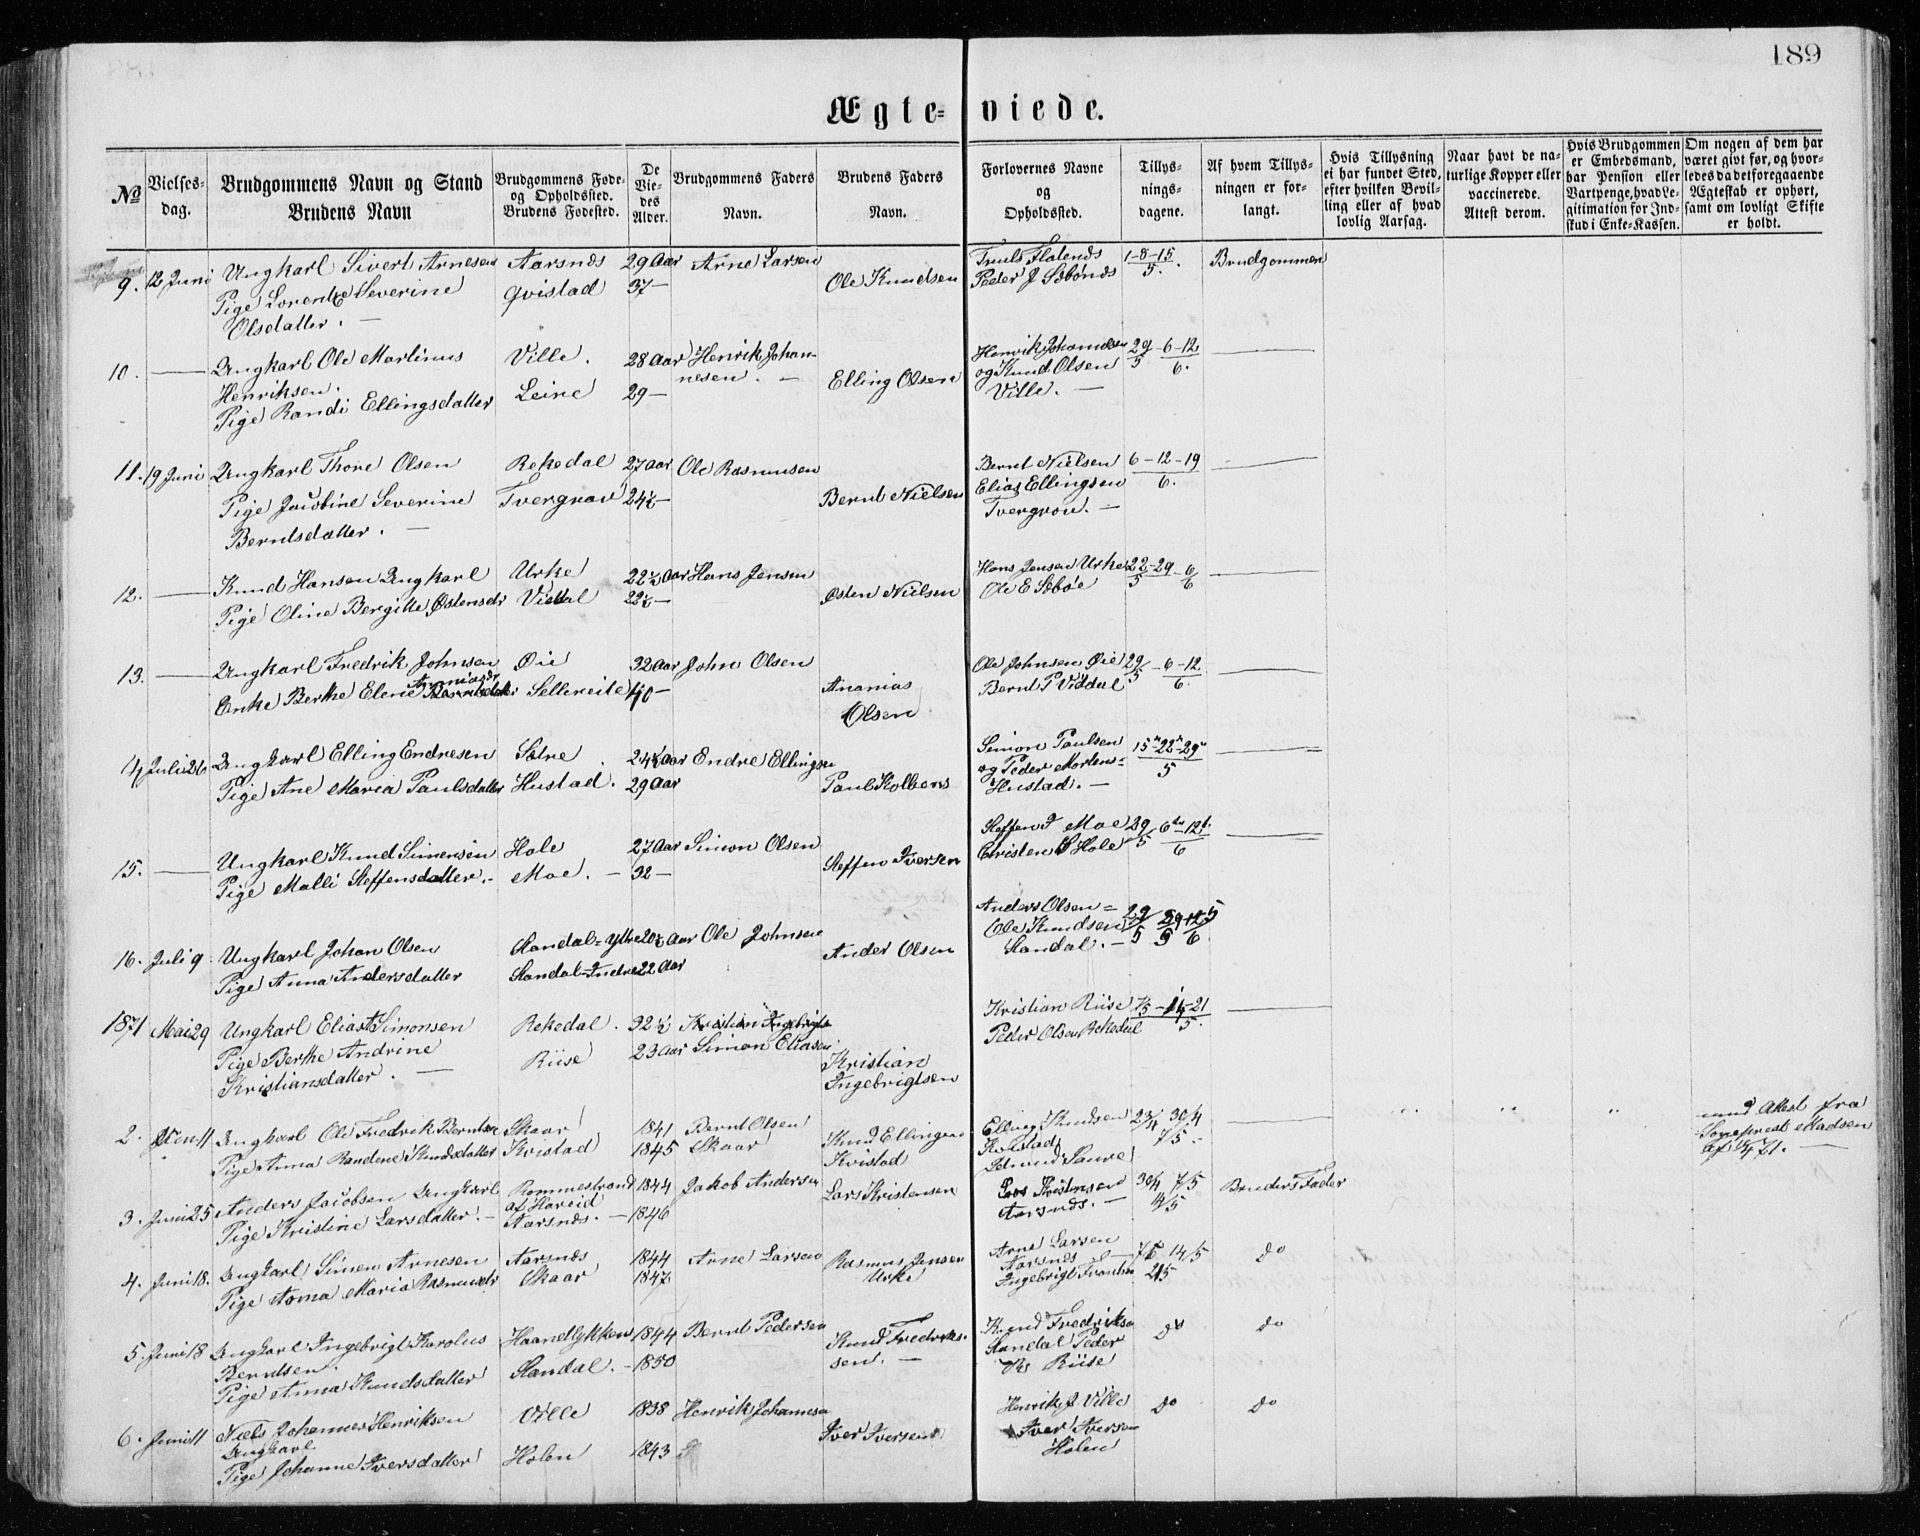 189
Ægte- viede.
№
Vielses-
dag.
Brudgommens Navn og Stand
Brudens Navn
Brudgommens Føde-
og Opholdssted.
Brudens Fødested.
De
Vie-
des
Alder.
Brudgommens Faders
Navn.
Brudens Faders
Navn.
Forlovernes Navne
og
Opholdssted.
Tillys-
nings-
dagene.
Af hvem Tillys-
ningen er for-
langt.
Hvis Tillysning
ei har fundet Sted,
efter hvilken Bevil-
ling eller af hvad
lovlig Aarsag.
Naar havt de na-
turlige Kopper eller
vaccinerede.
Attest derom.
Hvis Brudgommen
er Embedsmand,
har Pension eller
Vartpenge, hvad Le-
gitimation for Ind-
skud i Enke-Kassen.
Om nogen af dem har
været givt før, og hvor-
ledes da det foregaaende
Ægteskab er ophørt,
samt om lovligt Skifte
er holdt.
9. 12 Juni Ungkarl Sivert Arnesen Aarsnæs 29 Aar Arne Larsen Truls Flatenæs 1-8-15/5. Brudgommen
Pige Lorentze Severine Qvistad 37— Ole Knudsen Peder J Sæbønæs
Olsdatter. —
10. — Ungkarl Ole Martinus Ville. 28 Aar Henrik Johan- Henrik Johannesen 29/5-6-12/6. —
Henriksen. nesen. — og Knud Olsen
Pige Randi Ellingsdatter Leire 29— Elling Olsen Ville. —
11. 19 Juni Ungkarl Thore Olsen Rekedal 27 Aar Ole Rasmusen Bernt Nielsen 6-12-19/6. —
Pige Jacobine Severine Tvergrov 24½— Bernt Nielsen Elias Ellingsen
Berntsdatter. — Tvergrov. —
12. — Knud Hansen Ungkarl Urke 22½ Aar Hans Jensen Hans Jensen Urke 22-29/5-6/6 —
Pige Oline Bergitte Østensdr Viddal 22½— Østen Nielsen Ole E Sæbøe
13. — Ungkarl Fredrik Johnsen Øie 32 Aar John Olsen Ole Johnsen Øie 29/5-6-12/6. —
Ananiasdr
Enke Berthe Elene Sellereite 40— Ananias Bernt P Viddal
Olsen
14 Juli 26 Ungkarl Elling Endresen Sætre 24½ Aar Endre Ellingsen Simon Paulsen 15-22-29/5 —
Pige Ane Maria Paulsdatter Hustad. 29 Aar Paul Kolbens og Peder Mortens=
Hustad. —
15. — Ungkarl Knud Simensen Hole 27 Aar Simon Olsen Steffen I Moe 29/5 6-12/6 —
Pige Malli Steffensdatter. — Moe. — 32— Steffen Iversen Christen S Hole
16. Juli 9 Ungkarl Johan Olsen Standal=Ytre 20½ Aar Ole Johnsen Anders Olsen=
Pige Anna Andersdatter Standal=Indre 22 Aar Ander Olsen Ole Knudsen
Standal. —
1871 Mai 29 Ungkarl Elias Simonsen Rekedal. 32½ Kristian Ingebrigts Kristian Riise 7/5-14-21/5. —
Pige Berthe Andrine Riise 23 Aar Simon Eliasen Kristian Peder Olsen Rekedal
Kristiansdatter. — Ingebrigtsen
2. Juni 11 Ungkarl Ole Fredrik Berntsen Skaar 1841 Bernt Olsen Elling Knudsen 23/4 30/4 — med Attest fra
Pige Anna Randine Knudsdatter Kvistad 1845 Skaar Knud Ellingsen Kvistad 7/5. Sognepræst Madsen
Kvistad
3. Juni 25 Anders Jacobsen Ungkarl Rommestrand 1844 Jakob Andersen Lars Kristensen Lars Kristensen 30/4 7/5 Brudens Fader
Pige Kristine Larsdatter. — af Hareid Aarsnæs. — 14/5
Aarsnæs. — 1846
4. Juni 18. Ungkarl Simen Arnesen Aarsnæs 1844 Arne Larsen Rasmus Jensen Arne Larsen 7/5 14/5 do
Pige Anna Maria Rasmusdr Skaar 1847 Urke Aarsnæs 21/5
5. Juni 18 Ungkarl Ingebrigt Karolus Haandlykken 1844 Bernt Pedersen Knud Fredriks- Knud Fredriksen do do
Berntsen. Standal. — 1850 sen. — Standal Peder
Pige Anna Knudsdatter Riise
6. Juni 11 Niels Johannes Henriksen Ville 1838 Henrik Johannesen Iver Iversen Henrik J Ville do do
Ungkarl Iver Iversen
Pige Johanne Iversdatter Holen 1843 Holen